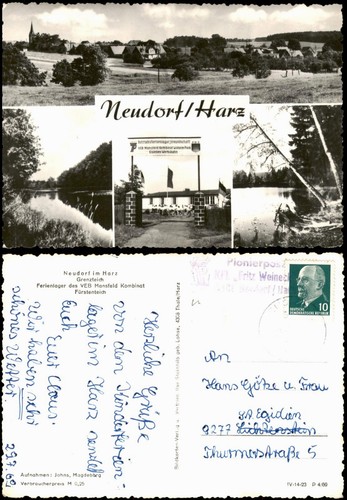 Neudorf/Harz
Neudorf im Harz
Grenzteich
Ferienlager des VEB Mansfeld Kombinat
Fürstenteich
Herzliche Grüße
von den Kinderferien-
lager im Harz sendet
Euch Euer Claus.
Wir haben sehr
schönes Wetter
29.7.69
Aufnahmen: Johns, Magdeburg
Verbraucherpreis M 0,25
Pionierpost
"Fritz Weineck"
DEUTSCHE
DEMOKRATISCHE REPUBLIK
10
An
Hans Götze u. Frau
St. Egidien
9277 Lichtenstein
Thurmerstraße 5
IV-14-03 D 4/69